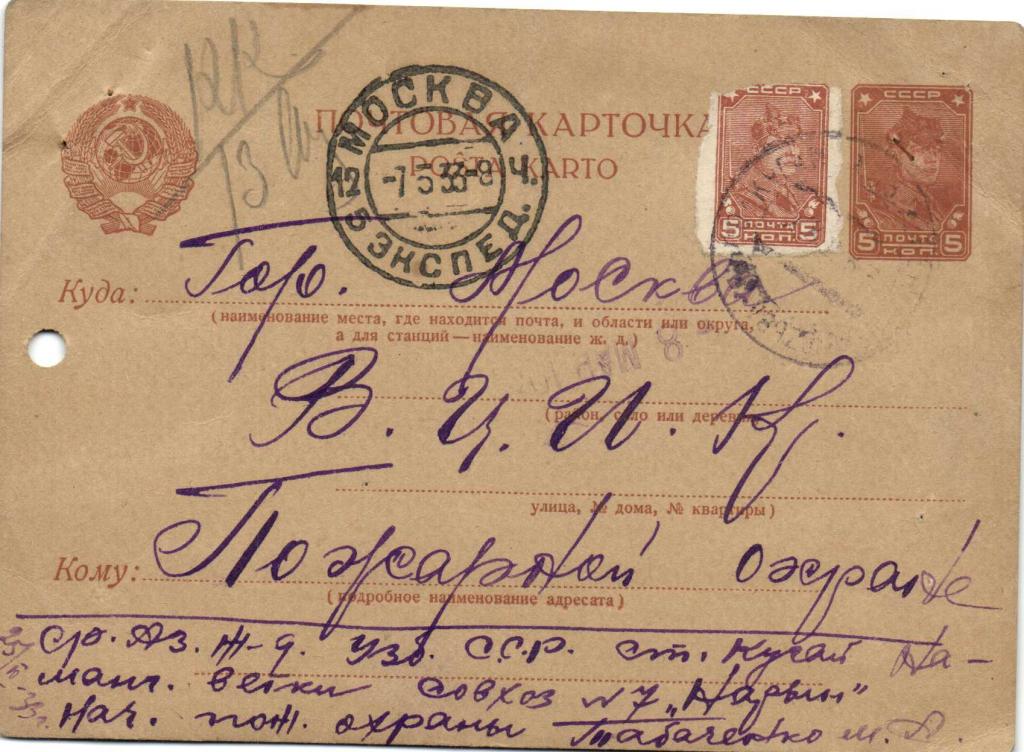 КК
13
МОСКВА
12 -7 3 33-8 Ч.
5 ЭКСПЕД.
ПОЧТОВАЯ КАРТОЧКА
POŜTA KARTO
СССР
5 ПОЧТА 5
КОП.
СССР
5 ПОЧТА 5
КОП.
Куда: Гор. Москва
(наименование места, где находится почта, и области или округа,
а для станций — наименование ж. д.)
8 МАР
В. Ц. И. К.
(район, село или деревня)
улица, № дома, № квартиры)
Кому: Пожарной охране
(подробное наименование адресата)
Ср. Аз. Ж-д. Узб. С.С.Р. ст. Кугай На-
манг. ветки совхоз №7 „Нарын"
Нач. пож. охраны Табаченко М. Д.